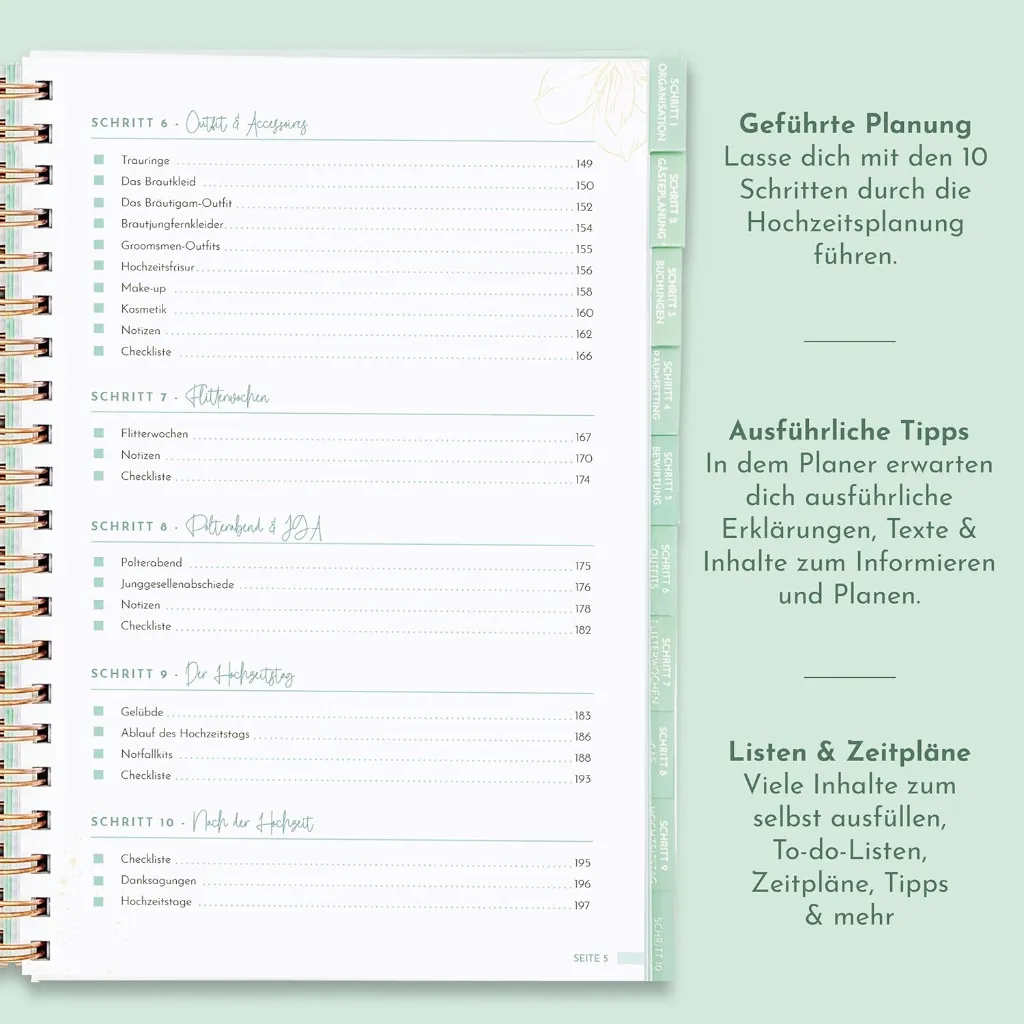 SCHRITT 6 - Outfit & Accessoires
Trauringe 149
Das Brautkleid 150
Das Bräutigam-Outfit 152
Brautjungfernkleider 154
Groomsmen-Outfits 155
Hochzeitsfrisur 156
Make-up 158
Kosmetik 160
Notizen 162
Checkliste 166
SCHRITT 7 - Flitterwochen
Flitterwochen 167
Notizen 170
Checkliste 174
SCHRITT 8 - Polterabend & JGA
Polterabend 175
Junggesellenabschiede 176
Notizen 178
Checkliste 182
SCHRITT 9 - Der Hochzeitstag
Gelübde 183
Ablauf des Hochzeitstags 186
Notfallkits 188
Checkliste 193
SCHRITT 10 - Nach der Hochzeit
Checkliste 195
Danksagungen 196
Hochzeitstage 197
SEITE 5
SCHRITT 1
ORGANISATION
SCHRITT 2
GÄSTEPLANUNG
SCHRITT 3
BUCHUNGEN
SCHRITT 4
RAUMSETTING
SCHRITT 5
BEWIRTUNG
SCHRITT 6
OUTFITS
SCHRITT 7
FLITTERWOCHEN
SCHRITT 8
SCHRITT 9
SCHRITT 10
Geführte Planung
Lasse dich mit den 10
Schritten durch die
Hochzeitsplanung
führen.
Ausführliche Tipps
In dem Planer erwarten
dich ausführliche
Erklärungen, Texte &
Inhalte zum Informieren
und Planen.
Listen & Zeitpläne
Viele Inhalte zum
selbst ausfüllen,
To-do-Listen,
Zeitpläne, Tipps
& mehr